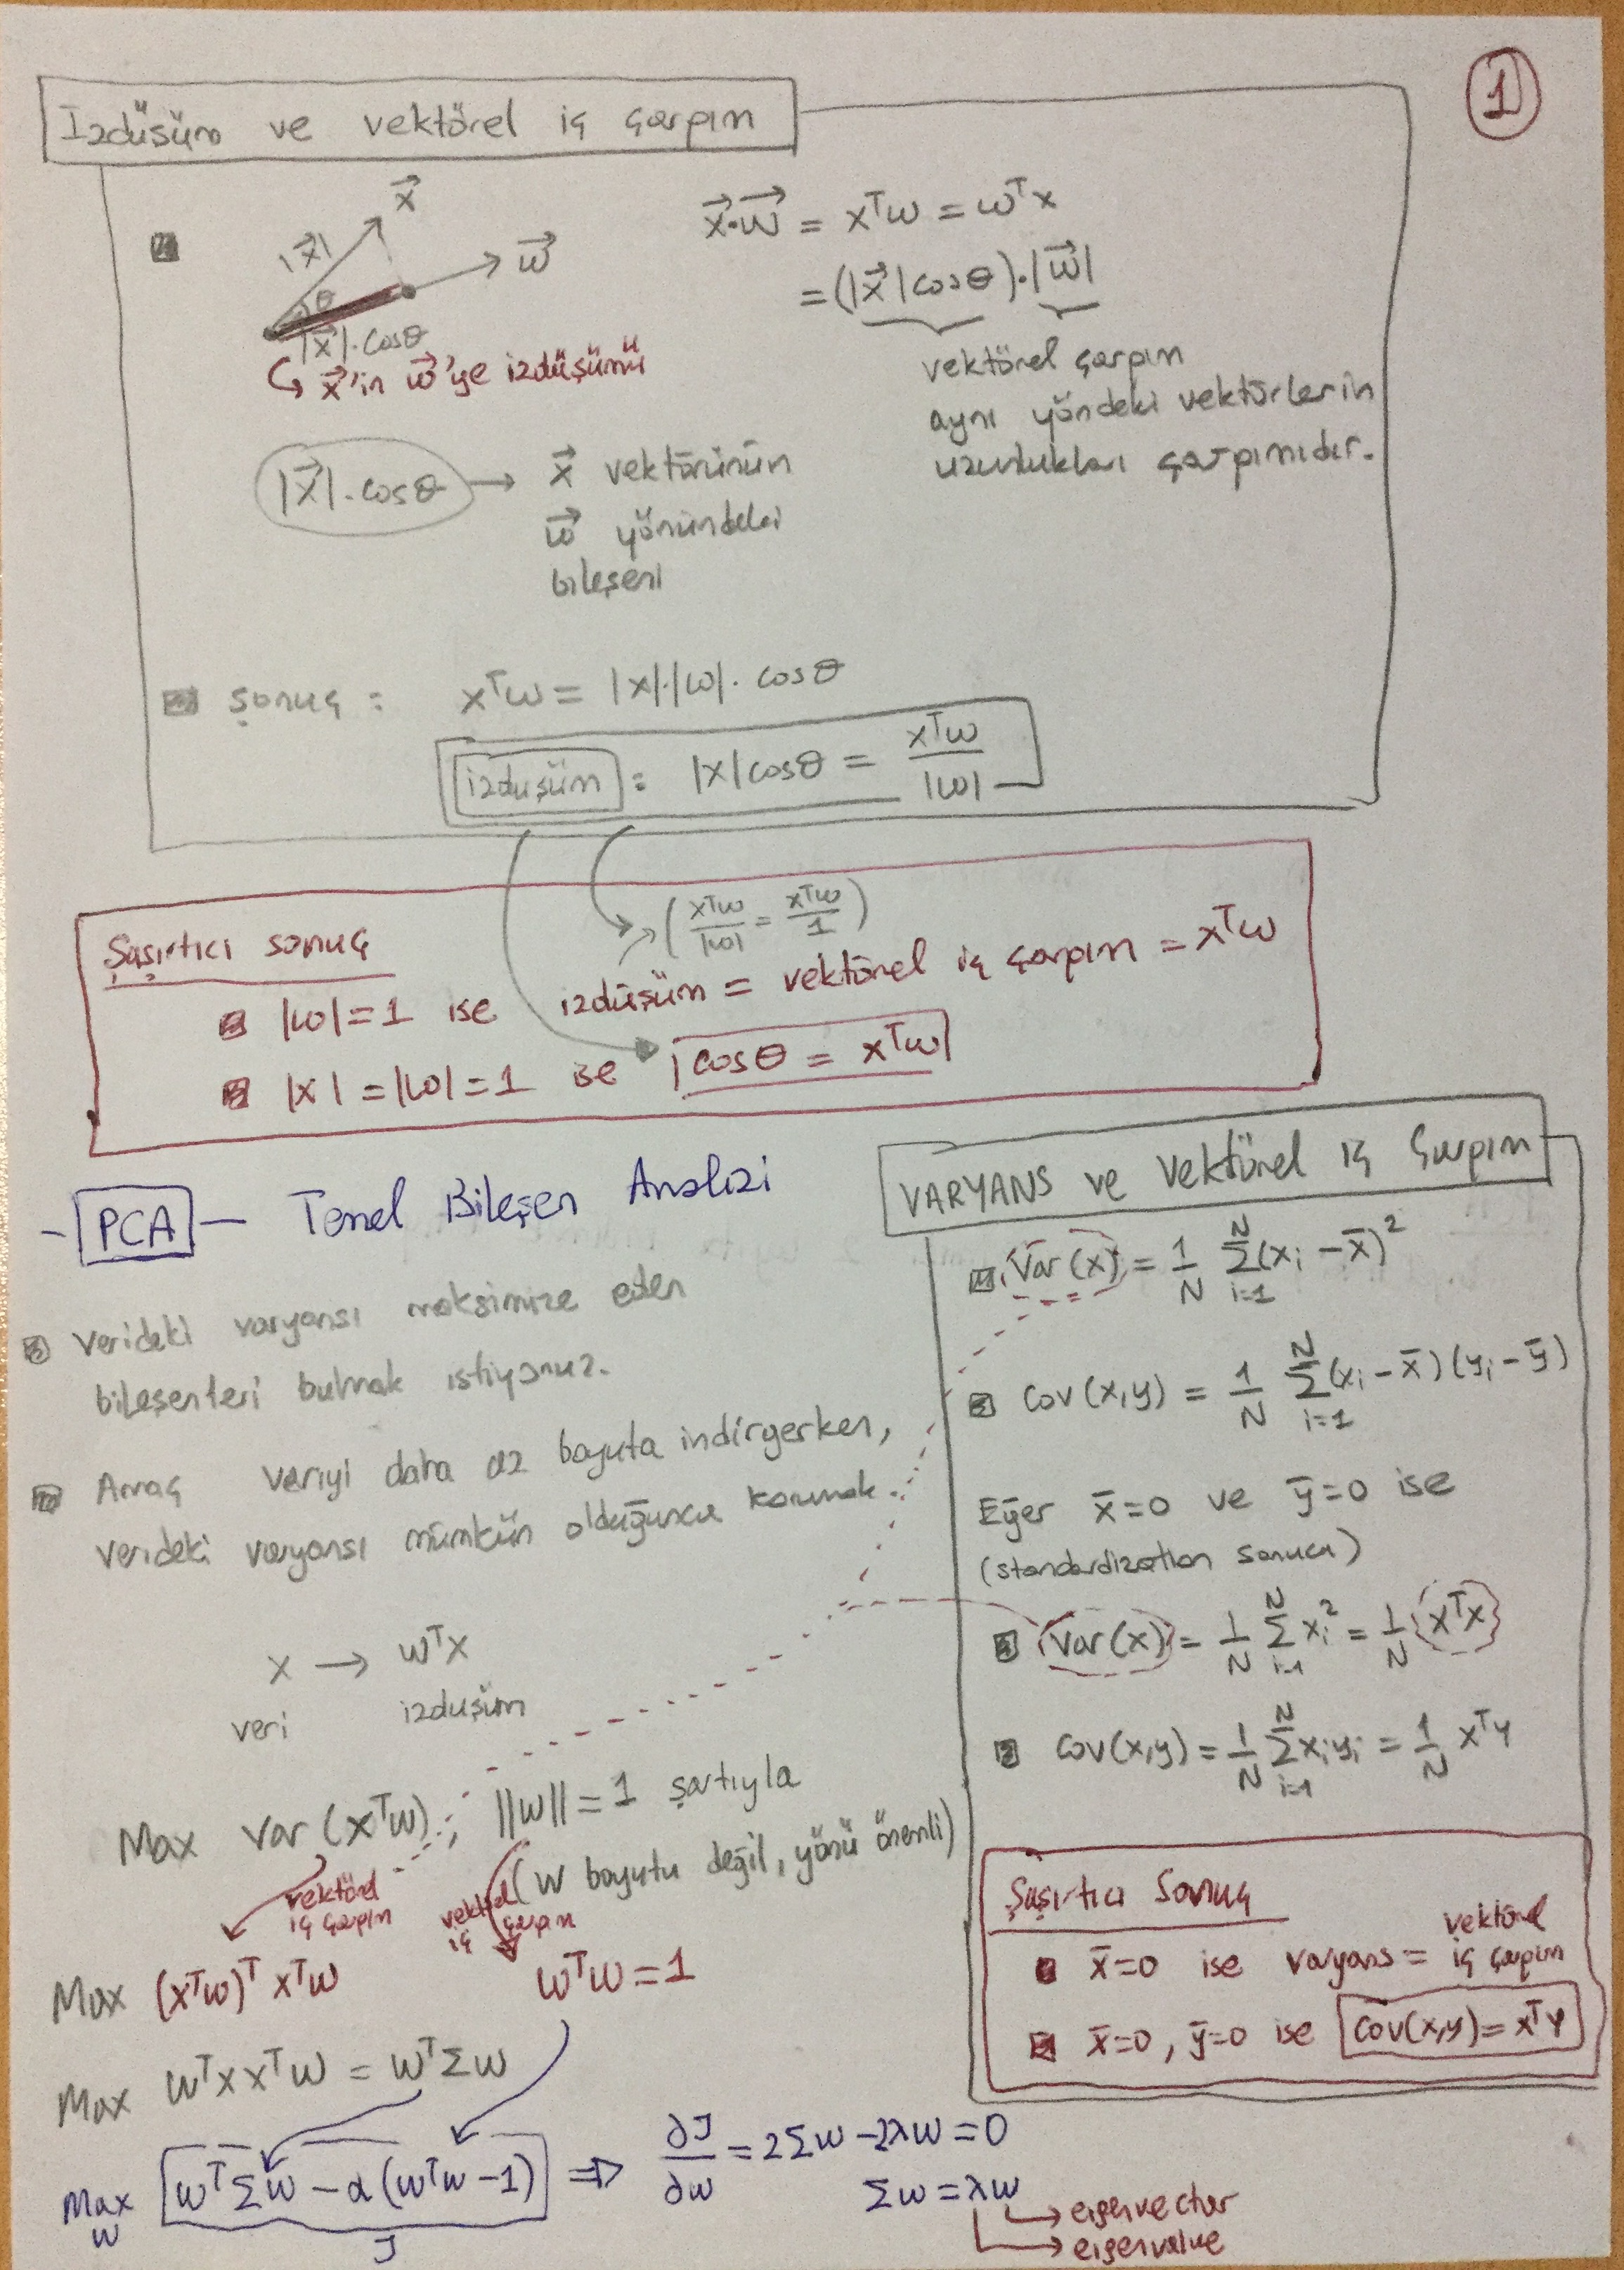 1
İzdüşüm ve vektörel iç çarpım
x⃗
|x⃗|
w⃗
θ
|x⃗|.cosθ
x⃗'in w⃗'ye izdüşümü
x⃗.w⃗ = xᵀw = wᵀx
= (|x⃗|cosθ).|w⃗|
vektörel çarpım
aynı yöndeki vektörlerin
uzunlukları çarpımıdır.
|x⃗|.cosθ → x⃗ vektörünün
w⃗ yönündeki
bileşeni
Sonuç : xᵀw = |x|.|w|.cosθ
izduşüm : |x|cosθ = xᵀw / |w|
(xᵀw / |w| = xᵀw / 1)
Şaşırtıcı sonuç
|w|=1 ise izdüşüm = vektörel iç çarpım = xᵀw
|x|=|w|=1 ise cosθ = xᵀw
- PCA - Temel Bileşen Analizi
Verideki varyansı maksimize eden
bileşenleri bulmak istiyoruz.
Amaç veriyi daha az boyuta indirgerken,
verideki varyansı mümkün olduğunca korumak.
x → wᵀx
veri izduşüm
Max Var (xᵀw) ; ||w||=1 şartıyla
(w boyutu değil, yönü önemli)
vektörel
iç çarpım
vektörel
iç çarpım
Max (xᵀw)ᵀ xᵀw wᵀw=1
Max wᵀx xᵀw = wᵀΣw
Max wᵀΣw - α(wᵀw-1) ⇒ ∂J/∂w = 2Σw - 2λw = 0
w
J
Σw = λw
eigenvector
eigenvalue
VARYANS ve vektörel iç çarpım
Var(x) = 1/N Σ_{i=1}^{N} (xᵢ - x̄)²
Cov(x,y) = 1/N Σ_{i=1}^{N} (xᵢ - x̄)(yᵢ - ȳ)
Eğer x̄=0 ve ȳ=0 ise
(standardization sonucu)
Var(x) = 1/N Σ_{i=1}^{N} xᵢ² = 1/N xᵀx
Cov(x,y) = 1/N Σ_{i=1}^{N} xᵢyᵢ = 1/N xᵀy
Şaşırtıcı Sonuç
x̄=0 ise varyans = vektörel iç çarpım
x̄=0, ȳ=0 ise Cov(x,y) = xᵀy